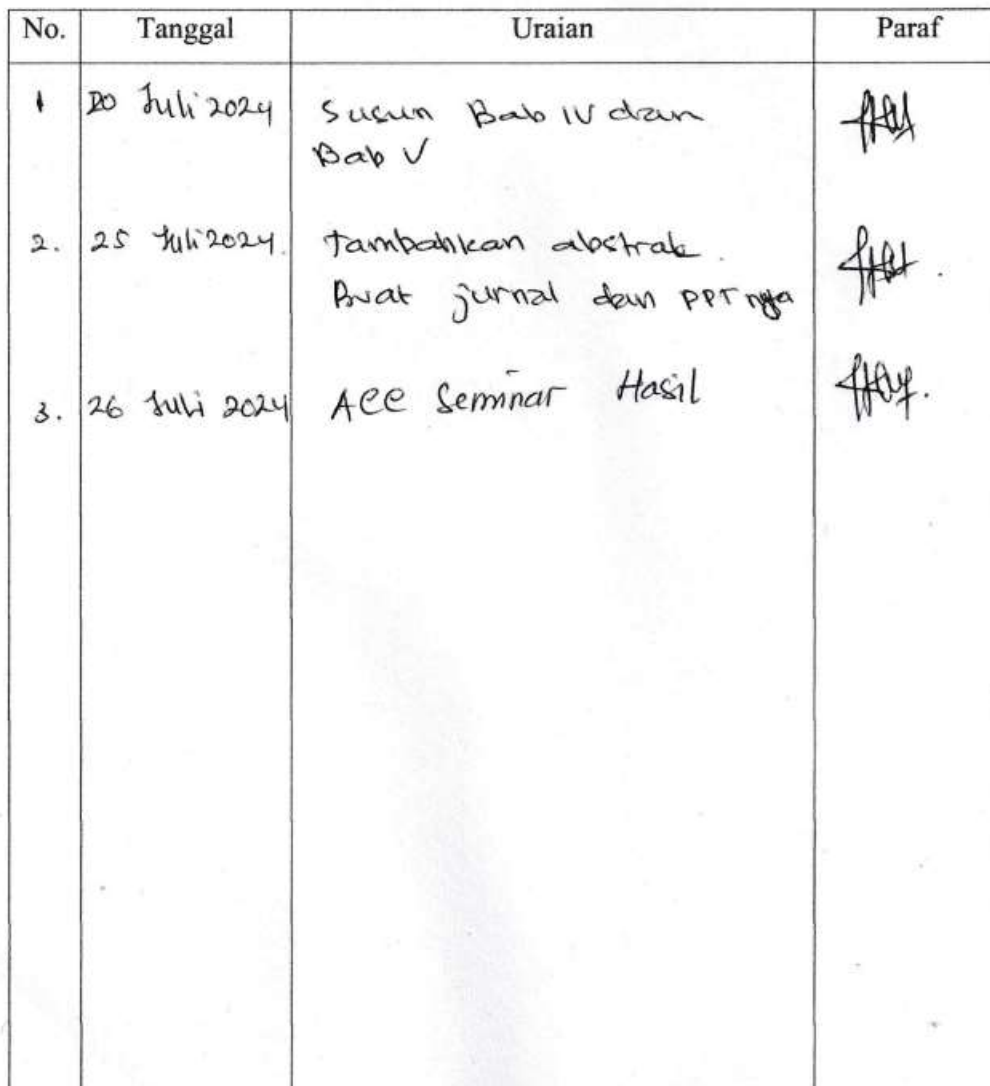 No. Tanggal Uraian Paraf
1 20 Juli 2024 Susun Bab IV dan
Bab V
2. 25 Juli 2024. tambahkan abstrak
Buat jurnal dan PPT nya
3. 26 Juli 2024 Acc Seminar Hasil